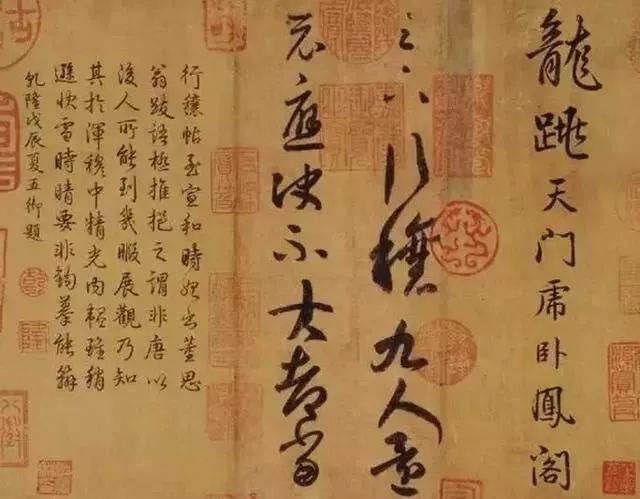 龍跳天門虎卧鳳閣
足下行穰九人還
示應決不大都當
行穰帖至宣和時始出董思
翁跋語極推挹之謂非唐以
後人所能到幾暇展觀乃知
其於渾穆中精光内韞雖稍
遜快雪時晴要非鈎摹能辦
乾隆戊辰夏五御題